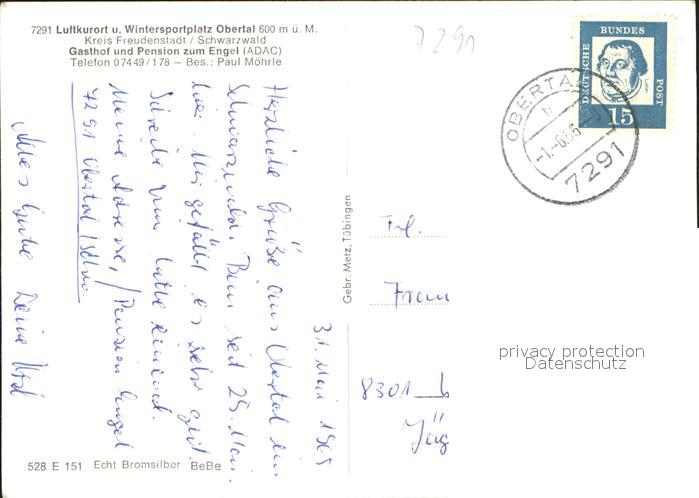 7291 Luftkurort u. Wintersportplatz Obertal 600 m ü. M.
Kreis Freudenstadt / Schwarzwald
Gasthof und Pension zum Engel (ADAC)
Telefon 07449/178 – Bes.: Paul Möhrle
7291
DEUTSCHE BUNDES POST
Luther
15
OBERTAL
b
7291
31. Mai 1965
Herzliche Grüße aus Obertal im
Schwarzwald. Bin seit 25. Mai
hier. Mir gefällt es sehr gut.
Schreibe mir bitte einmal.
Meine Adresse, Pension Engel
7291 Obertal / Schw.
Alles Gute Deine
Gebr. Metz, Tübingen
Frl.
8301
privacy protection
Datenschutz
528 E 151 Echt Bromsilber BeBe